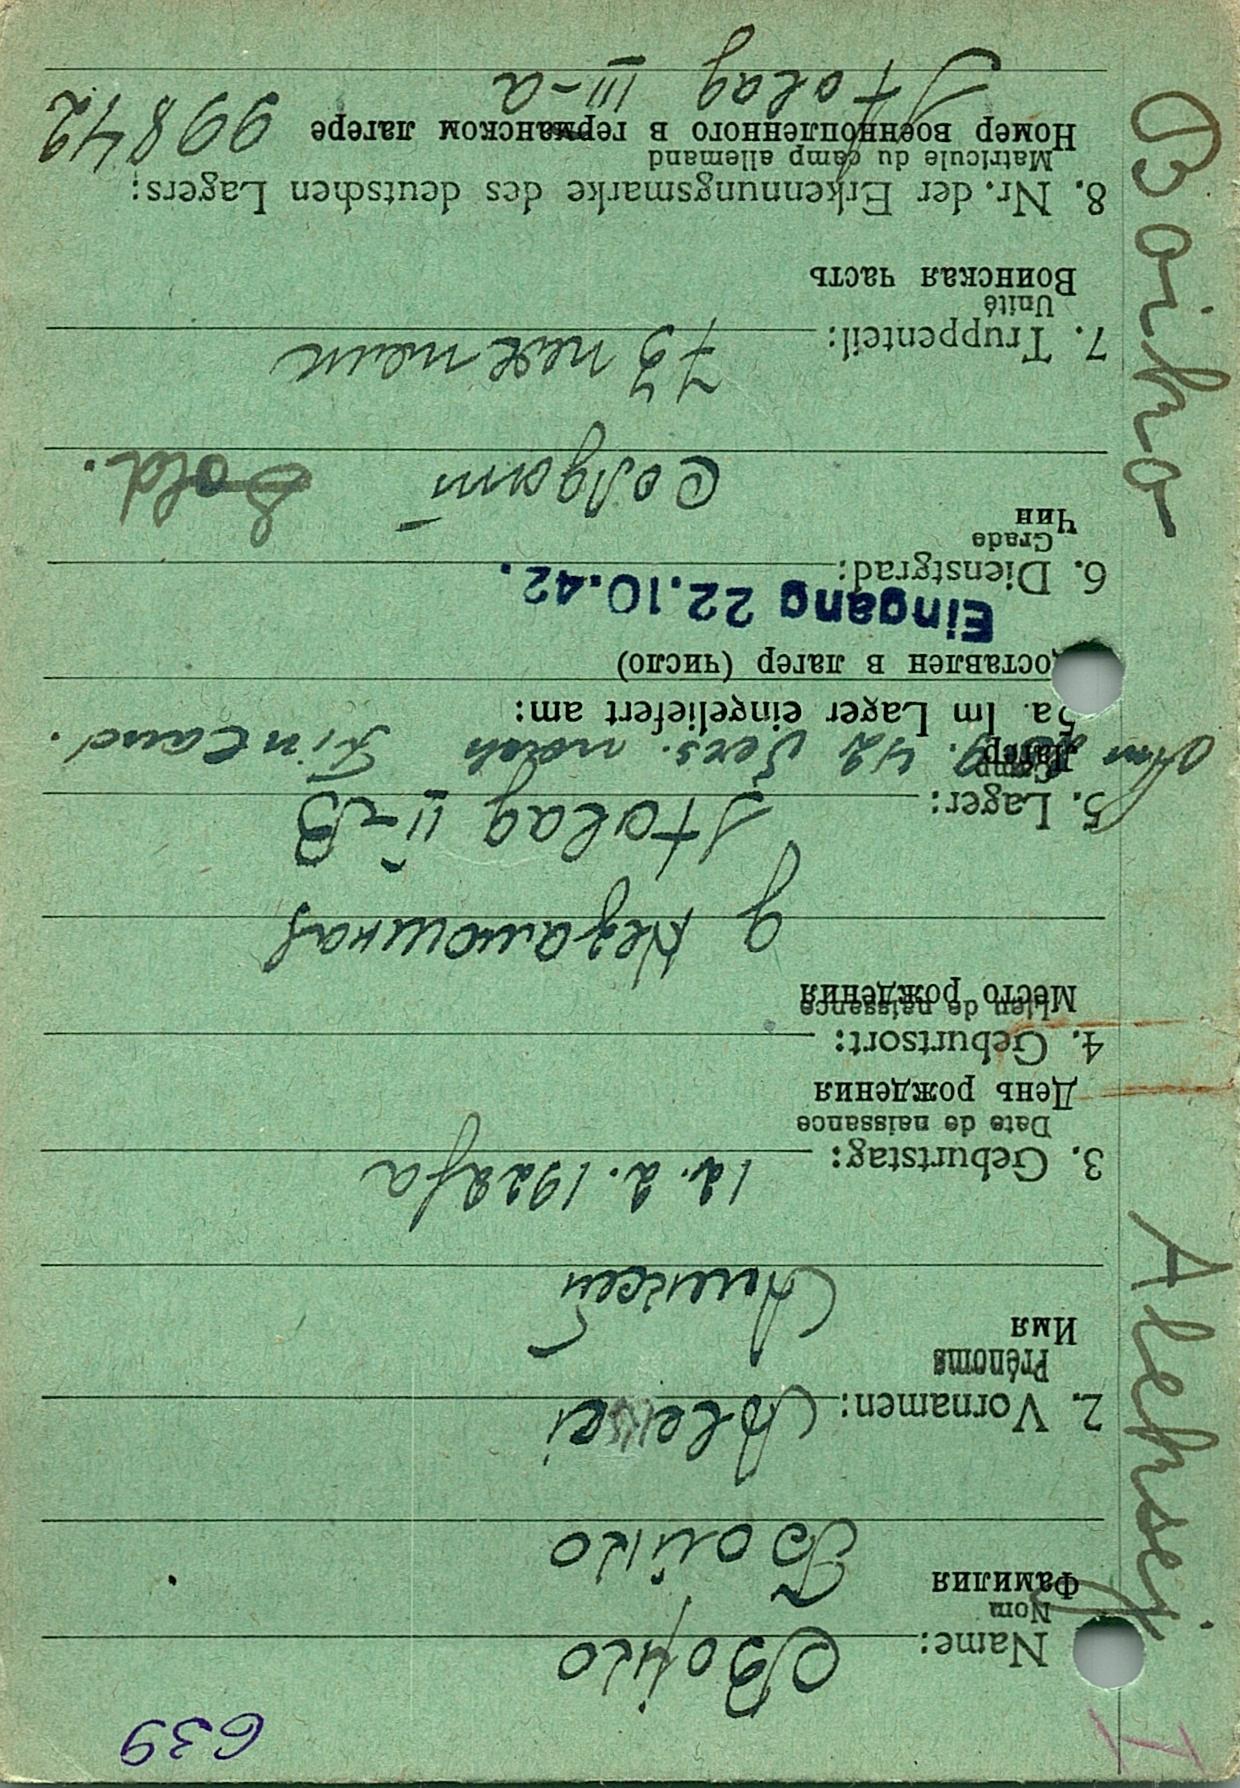 639
Name: Bojko
Nom
Фамилия
Бойко
2. Vornamen: Aleksei
Prénoms
Имя
Алексей
3. Geburtstag: 12.2.1922 га
Date de naissance
День рождения
4. Geburtsort:
Lieu de naissance
Место рождения
д
5. Lager: Stalag II-B
Camp
Лагерь
Am 9. 42 Vers. nach Finland.
5a. Im Lager eingeliefert am:
Доставлен в лагер (число)
Eingang 22.10.42.
6. Dienstgrad:
Grade
Чин
Солдат Sold.
7. Truppenteil: 73
Unité
Воинская часть
8. Nr. der Erkennungsmarke des deutschen Lagers:
Matricule du camp allemand
Номер военнопленного в германском лагере 99842
Stalag III-a
Boiko Aleksej